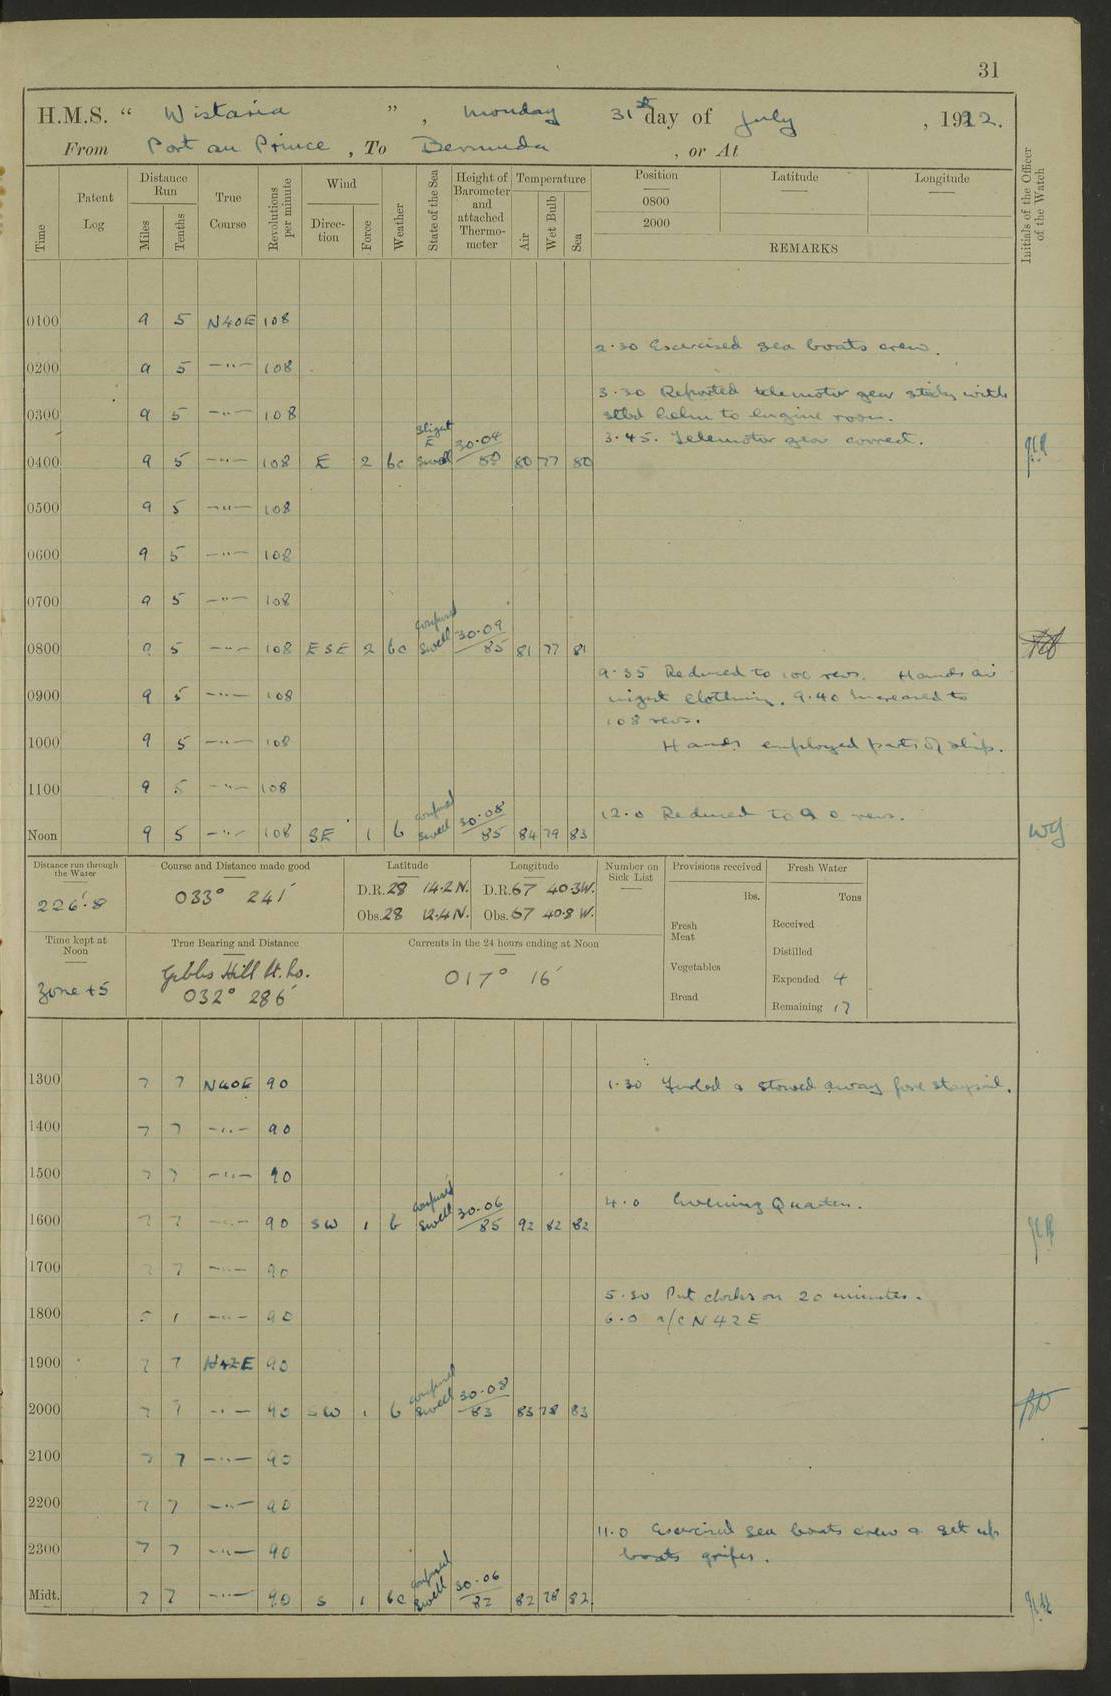 31
H.M.S. “ Wistaria ”, Monday 31st day of July, 1922.
From Port au Prince, To Bermuda, or At
Time
Patent Log
Distance Run
Miles
Tenths
True Course
Revolutions per minute
Wind
Direction
Force
Weather
State of the Sea
Height of Barometer and attached Thermometer
Temperature
Air
Wet Bulb
Sea
Position
0800
2000
Latitude
Longitude
REMARKS
Initials of the Officer of the Watch
0100 9 5 N40E 108
2.30 Exercised sea boats crew.
0200 9 5 —"— 108
3.30 Reported telemotor gear sticky with
0300 9 5 —"— 108 stbd helm to engine room.
3.45. Telemotor gear correct.
0400 9 5 —"— 108 E 2 bc Slight E Swell 30.04 80 77 80
0500 9 5 —"— 108
0600 9 5 —"— 108
0700 9 5 —"— 108
0800 9 5 —"— 108 ESE 2 bc Confused Swell 30.09 85 81 77 81
9.35 Reduced to 100 revs. Hands air
0900 9 5 —"— 108 night clothing. 9.40 Increased to
108 revs.
1000 9 5 —"— 108 Hands employed parts of ship.
1100 9 5 —"— 108
12.0 Reduced to 90 revs.
Noon 9 5 —"— 108 SE 1 b Confused Swell 30.08 85 84 79 83 WG
Distance run through the Water
226'.8
Course and Distance made good
033° 241'
Latitude
D.R. 28 14.2 N.
Obs. 28 12.4 N.
Longitude
D.R. 67 40.3 W.
Obs. 67 40.8 W.
Number on Sick List
Provisions received
lbs.
Fresh Meat
Vegetables
Bread
Fresh Water
Tons
Received
Distilled
Expended 4
Remaining 17
Time kept at Noon
Zone +5
True Bearing and Distance
Gibbs Hill Lt. Ho.
032° 286'
Currents in the 24 hours ending at Noon
017° 16'
1300 7 7 N40E 90 1.30 Furled & stowed away fore staysail.
1400 7 7 —"— 90
1500 7 7 —"— 90
4.0 Evening Quarters.
1600 7 7 —"— 90 SW 1 b Confused Swell 30.06 85 92 82 82
1700 7 7 —"— 90
5.30 Put clocks on 20 minutes.
1800 5 1 —"— 90 6.0 a/c N42E
1900 7 7 N42E 90
2000 7 7 —"— 90 SW 1 b Confused Swell 30.08 83 83 78 83
2100 7 7 —"— 90
2200 7 7 —"— 90
11.0 Exercised sea boats crew & set up
2300 7 7 —"— 90 boats gripes.
Midt. 7 7 —"— 90 S 1 bc Confused Swell 30.06 82 82 78 82